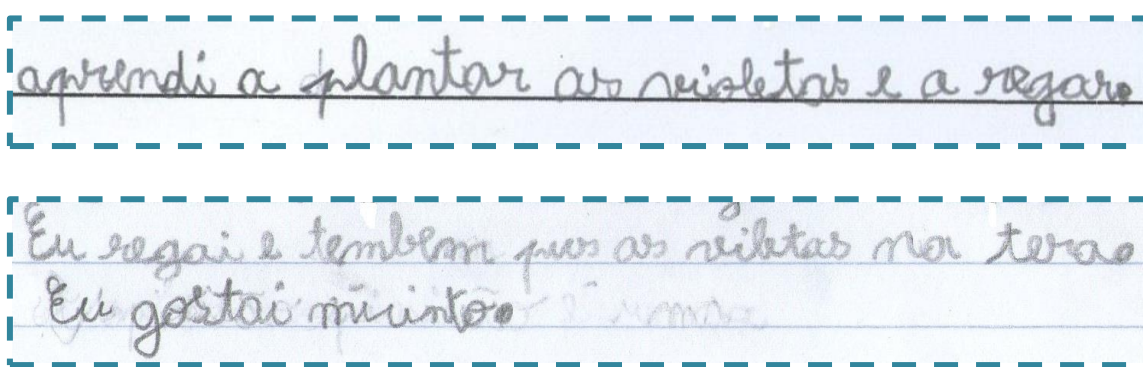 aprendi a plantar as violetas e a regar.
Eu regai e temblem pus as viletas na tera.
Eu gostai miuinto.